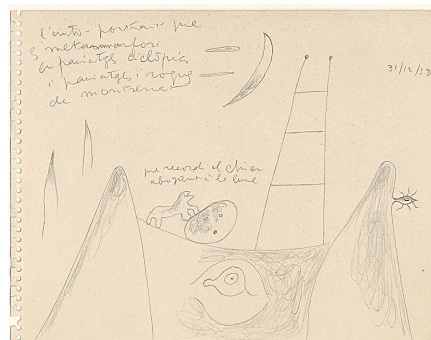 l'auto-portrait que
es metamorfosi
en paisatges ciclòpics
i paisatges i roques
de montserrat
31/12/38
que record el chien
aboyant à la lune